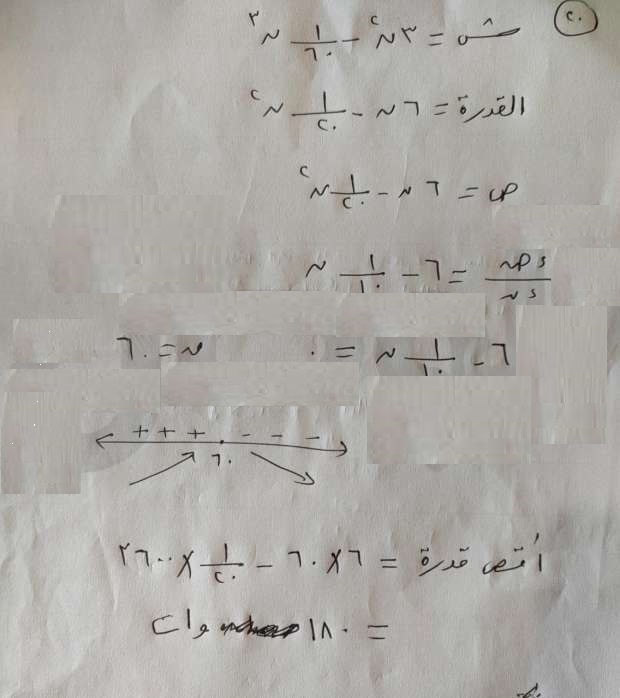 ٢٠
شـ = ٣ن٢ - ١/٦٠ ن٣
القدرة = ٦ن - ١/٢٠ ن٢
ص = ٦ن - ١/٢٠ ن٢
ءص/ءن = ٦ - ١/١٠ ن
٦ - ١/١٠ ن = ٠ ن = ٦٠
+ + + - - -
٦٠
أقص قدرة = ٦ × ٦٠ - ١/٢٠ × ٣٦٠٠
= ١٨٠ وات